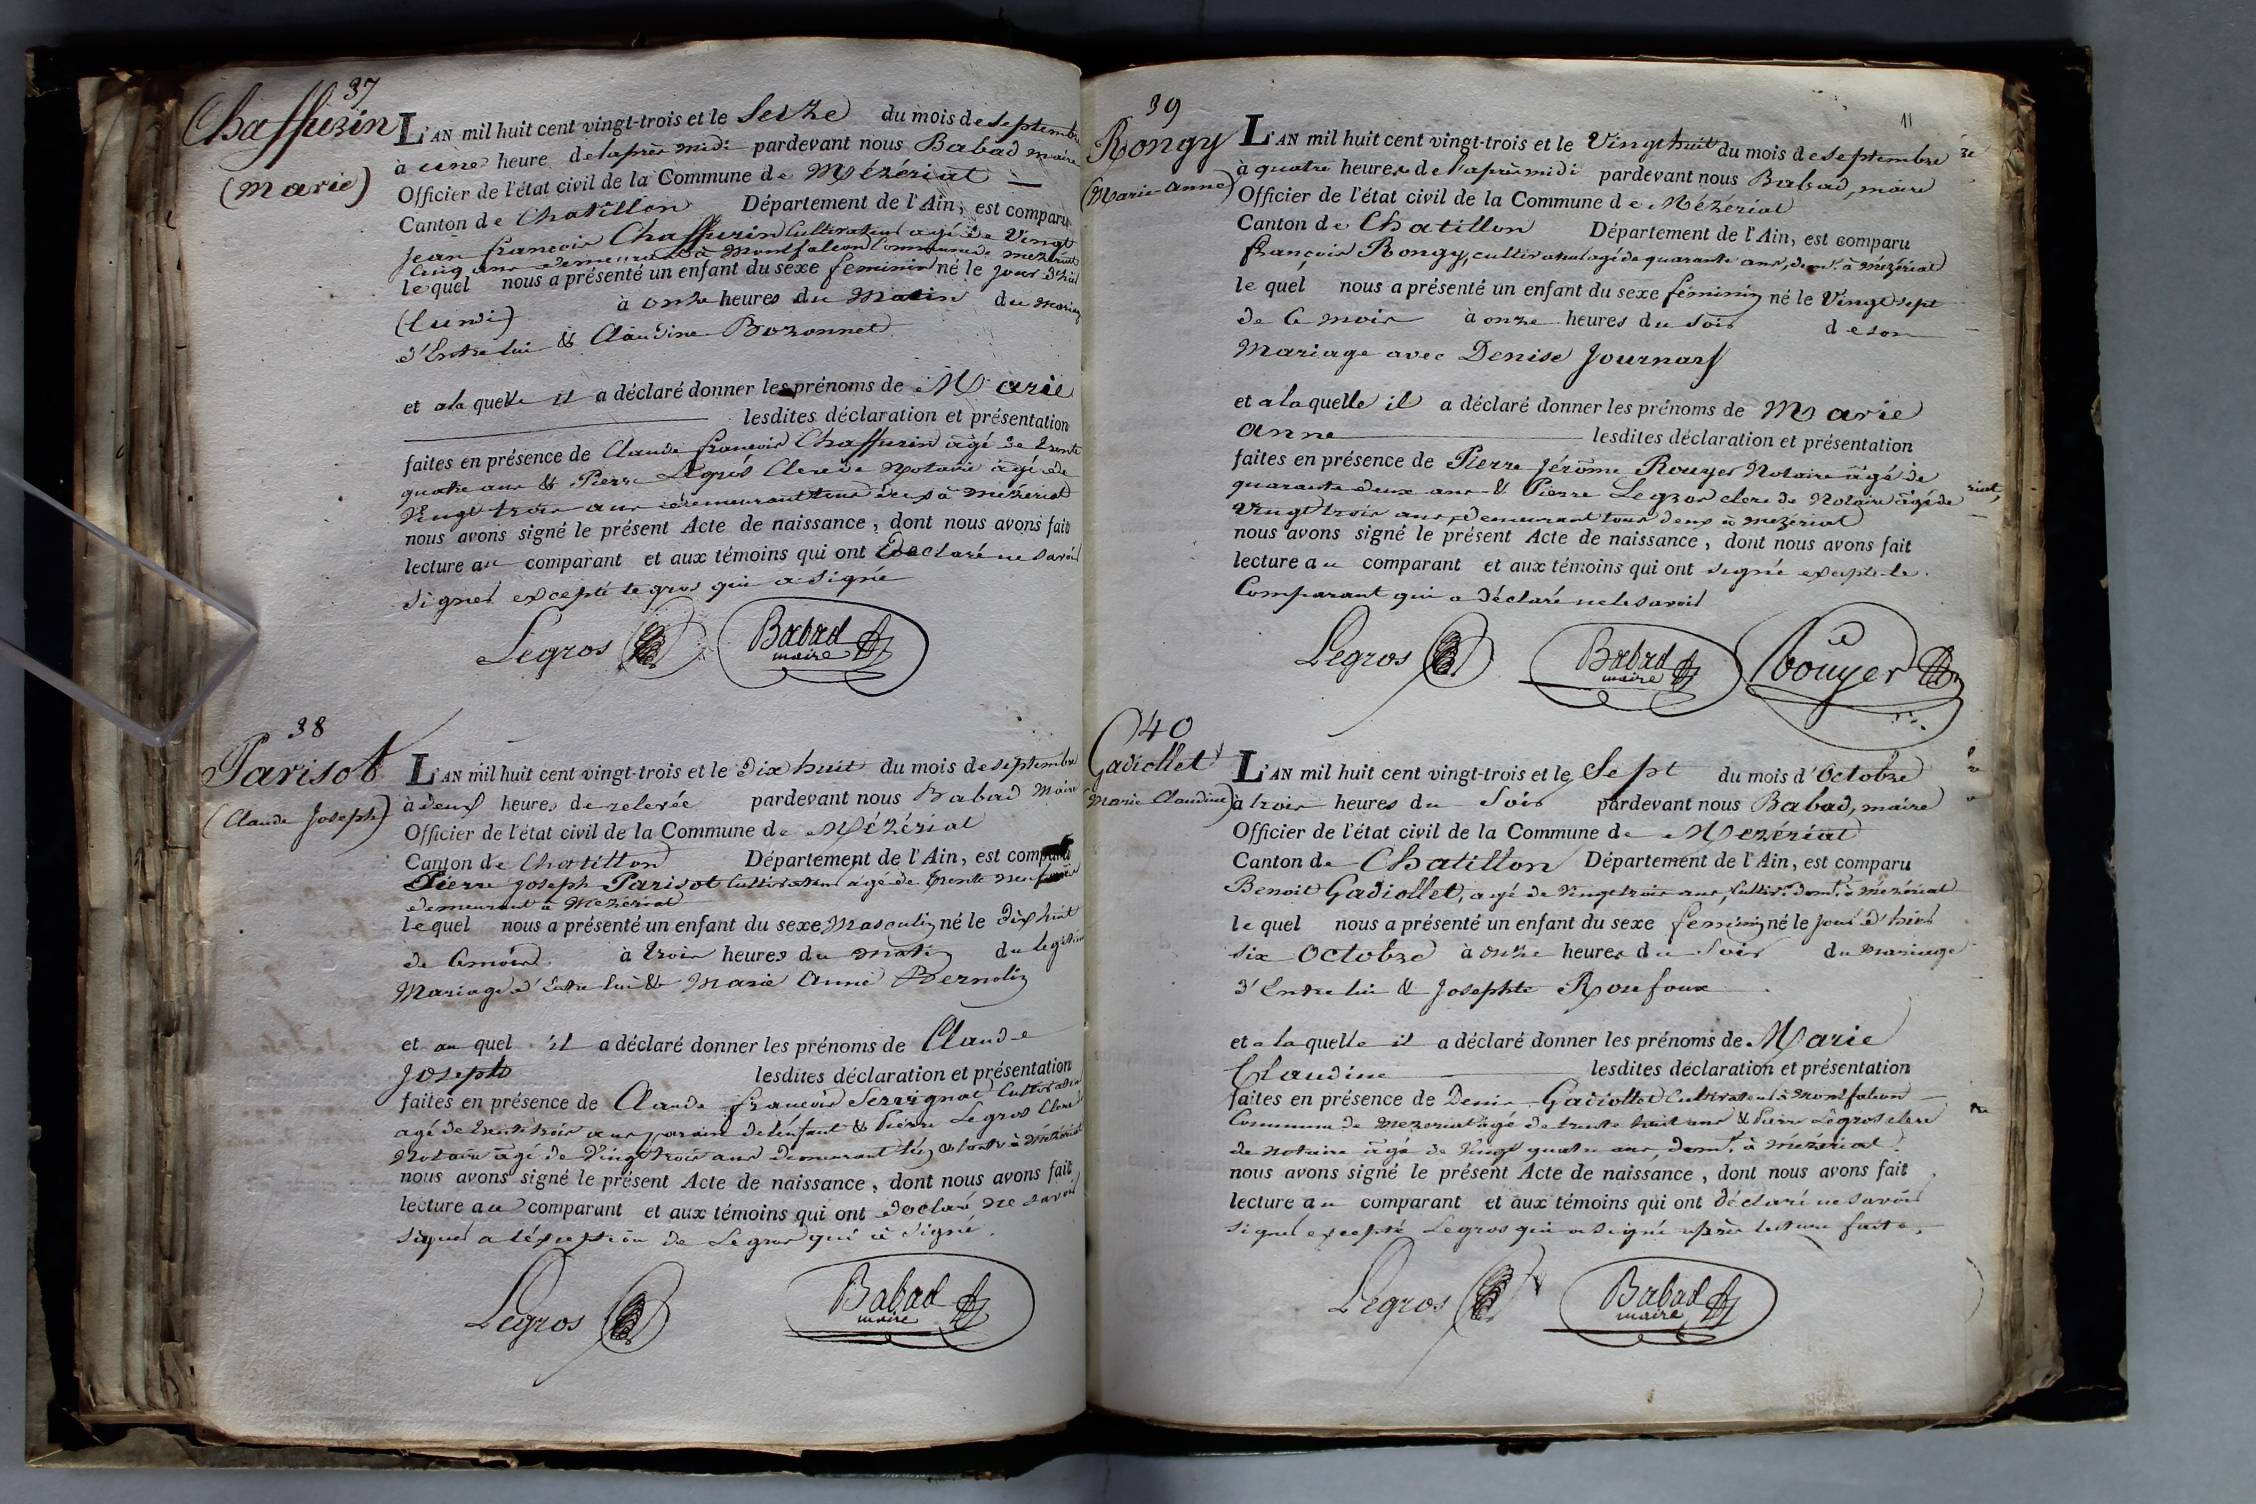 37
Chaffurin
(Marie)
L'AN mil huit cent vingt-trois et le Seize du mois de septembre
à une heure de laprès midi pardevant nous Babad maire
Officier de l'état civil de la Commune de Mézériat
Canton de Chatillon Département de l'Ain, est comparu
Jean françois Chaffurin Cultivateur agé de Vingt
Cinq ans demeurant à Montfalcon Commune de Mézériat
le quel nous a présenté un enfant du sexe feminin né le jour d'hui
(lundi) à onze heures du Matin du Mariage
d'Entre lui & Claudine Bozonnet
et a la quelle il a déclaré donner les prénoms de Marie
lesdites déclaration et présentation
faites en présence de Claude françois Chaffurin agé de trente
quatre ans & Pierre Legros Clerc de Notaire agé de
Vingt trois ans demeurant tous deux à Mézériat
nous avons signé le présent Acte de naissance, dont nous avons fait
lecture au comparant et aux témoins qui ont déclaré ne savoir
signer excepté legros qui a signé
Legros Babad
maire
38
Parisot
(Claude Joseph)
L'AN mil huit cent vingt-trois et le Dix huit du mois de septembre
à deux heures de relevée pardevant nous Babad Maire
Officier de l'état civil de la Commune de Mézériat
Canton de Chatillon Département de l'Ain, est comparu
Pierre Joseph Parisot Cultivateur agé de trente neuf ans
demeurant à Mézériat
le quel nous a présenté un enfant du sexe Masculin né le Dix huit
de Ce mois à trois heures du matin du legitime
Mariage d'Entre lui & Marie Anne Bernolin
et au quel il a déclaré donner les prénoms de Claude
Joseph lesdites déclaration et présentation
faites en présence de Claude françois Serrignat Cultivateur
agé de trente trois ans parain de l'enfant & Pierre Legros Clerc de
Notaire agé de Vingt trois ans demeurant à Mézériat
nous avons signé le présent Acte de naissance, dont nous avons fait
lecture au comparant et aux témoins qui ont déclaré ne savoir
signer a l'éxception de Legros qui à signé.
Legros Babad
maire
11
39
Rongy
(Marie-Anne)
L'AN mil huit cent vingt-trois et le Vingt huit du mois de septembre
à quatre heures de l'après midi pardevant nous Babad, maire
Officier de l'état civil de la Commune de Mézériat
Canton de Chatillon Département de l'Ain, est comparu
françois Rongy, cultivateur agé de quarante ans, demt. à Mézériat
le quel nous a présenté un enfant du sexe féminin né le Vingt sept
de Ce mois à onze heures du Soir de son
Mariage avec Denise Journas
et a la quelle il a déclaré donner les prénoms de Marie
anne lesdites déclaration et présentation
faites en présence de Pierre Jérôme Rouyer Notaire âgé de
quarante deux ans & Pierre Legros clerc de Notaire âgé de
Vingt trois ans, demeurant tous deux à Mézériat
nous avons signé le présent Acte de naissance, dont nous avons fait
lecture au comparant et aux témoins qui ont signé excepté le
Comparant qui a déclaré ne le savoir
Legros Babad Rouyer
maire
40
Gadiollet
(Marie Claudine)
L'AN mil huit cent vingt-trois et le Sept du mois d'Octobre
à trois heures du Soir pardevant nous Babad, maire
Officier de l'état civil de la Commune de Mézériat
Canton de Chatillon Département de l'Ain, est comparu
Benoit Gadiollet, agé de Vingt trois ans, Cultivr. demt. à Mézériat
le quel nous a présenté un enfant du sexe feminin né le Jour d'hier
six Octobre à onze heures du Soir du Mariage
d'Entre lui & Josephte Roufoux
et a la quelle il a déclaré donner les prénoms de Marie
Claudine lesdites déclaration et présentation
faites en présence de Denis Gadiollet Cultivateur à Montfalcon
Commune de Mézériat agé de trente huit ans & Pierre Legros clerc
de Notaire âgé de Vingt quatre ans, demt. à Mézériat
nous avons signé le présent Acte de naissance, dont nous avons fait
lecture au comparant et aux témoins qui ont déclaré ne savoir
signer excepté Legros qui a signé après lecture faite,
Legros Babad
maire